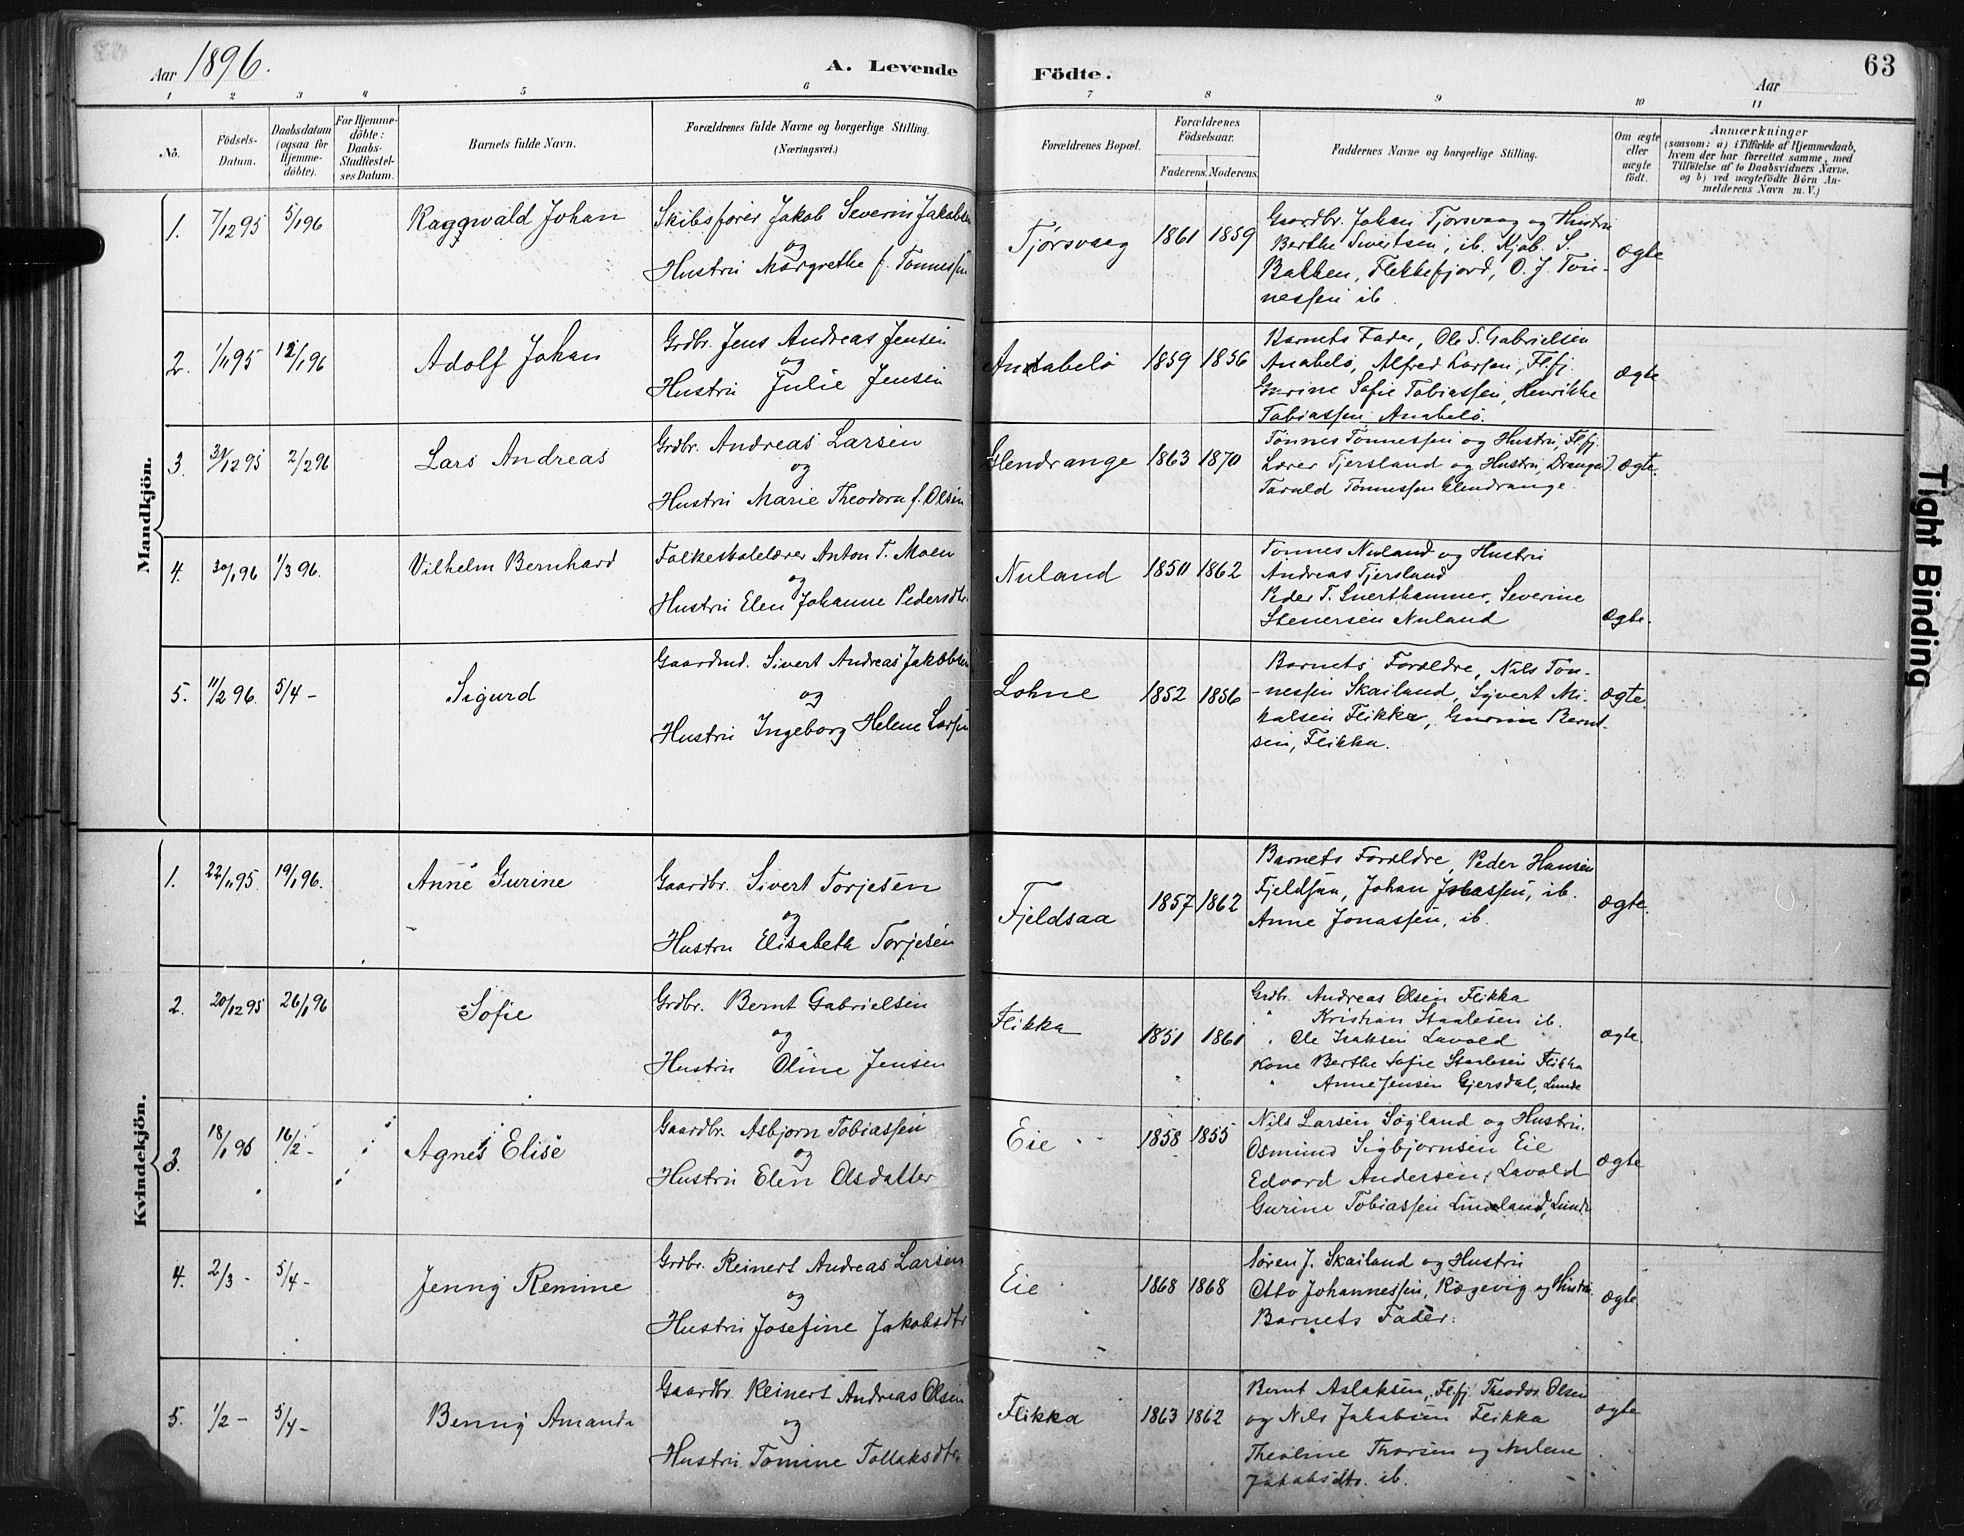 Aar 1896.
A. Levende Födte.
Aar
63
1 2 3 4 5 6 7 8 9 10 11
No.
Födsels-Datum.
Daabsdatum (ogsaa for Hjemme-döbte).
For Hjemme-döbte: Daabs-Stadfæstel-ses Datum.
Barnets fulde Navn.
Forældrenes fulde Navne og borgerlige Stilling. (Næringsvei.)
Forældrenes Bopæl.
Forældrenes Födselsaar.
Faderens. Moderens.
Faddernes Navne og borgerlige Stilling.
Om ægte eller uægte födt.
Anmærkninger
(saasom: a) i Tilfælde af Hjemmedaab,
hvem der har forrettet samme, med
Tilföielse af to Daabsvidners Navne,
og b) ved uægtefödte Börn An-
melderens Navn m. V.)
Mandkjön.
1. 7/12 95 5/1 96 Raggwald Johan
Skibsfører Jakob Severin Jakobsen
og
Hustru Margrethe f. Tønnessen
Tjørsvaag 1861 1859
Gaardbr. Johan Tjorsvaag og Hustru
Berthe Sivertsen, ib. Kjøb. S.
Bakken, Flekkefjord, O. J. Tøn-
nessen ib.
ægte
2. 1/11 95 12/1 96 Adolf Johan
Grdbr. Jens Andreas Jensen
og
Hustru Julie Jensen
Anabelø 1859 1856
Barnets Fader, Ole S. Gabrielsen
Anabelø, Alfred Larsen, Flfj.
Gurine Sofie Tobiassen, Henrikke
Tobiassen Anabelø.
ægte
3. 30/12 95 2/2 96 Lars Andreas
Grdbr. Andreas Larsen
og
Hustru Marie Theodora f. Olsen
Glendrange 1863 1870
Tønnes Tønnessen og Hustru, Flfj.
Lærer Tjersland og Hustru, Drangeid.
Tarald Tønnessen Glendrange.
ægte.
4. 30/1 96 1/3 96. Vilhelm Bernhard
Folkeskolelærer Anton T. Moen
og
Hustru Elen Johanne Pedersdtr.
Nuland 1850 1862
Tønnes Nuland og Hustru
Andreas Tjersland
Peder T. Snerthammer, Severine
Stenersen Nuland
ægte.
5. 11/2 96. 5/4 – Sigurd
Gaardmd. Sivert Andreas Jakobsen
og
Hustru Ingeborg Helene Larsen
Lohne 1852 1856
Barnets Forældre, Nils Tøn-
-nessen Skailand, Syvert Mi-
kalsen Flikka, Gurine Bernt-
sen, Flikka.
ægte.
Kvindekjön.
1. 22/11 95. 19/1 96. Anne Gurine
Gaardbr. Sivert Torjesen
og
Hustru Elisabeth Torjesen
Fjeldsaa 1857 1862
Barnets Forældre, Peder Hansen
Fjeldsaa, Johan Jonassen, ib.
Anne Jonassen, ib.
ægte.
2. 20/12 95 26/1 96 Sofie
Grdbr. Bernt Gabrielsen
og
Hustru Oline Jensen
Flikka 1851 1861
Grdbr. Andreas Olsen Flikka
" Kristian Staalesen ib.
" Ole Isaksen Lavold
Kone Berthe Sofie Staalesen Flikka
" Anne Jensen Gjersdal, Lunde
ægte.
3. 18/1 96 16/2 – Agnes Elise
Gaardbr. Asbjørn Tobiassen
og
Hustru Elen Olsdatter
Eie 1858 1855
Nils Larsen Søgland og Hustru.
Osmund Sigbjørnsen Eie
Edvard Andersen, Lavold
Gurine Tobiassen Lindland, Lunde
ægte
4. 2/3 – 5/4 – Jenny Remine
Grdbr. Reinert Andreas Larsen
og
Hustru Josefine Jakobsdtr
Eie 1868 1868
Søren J. Skailand og Hustru
Otto Johannessen, Rægevig og Hustru.
Barnets Fader.
ægte.
5. 1/2 – 5/4 – Benny Amanda
Gaardbr. Reinert Andreas Olsen
og
Hustru Tomine Tollaksdtr.
Flikka 1863 1862
Bernt Aslaksen, Flfj. Theodor Olsen
og Nils Jakobsen Flikka
Theoline Thorsen og Malene
Jakobsdtr. ib.
ægte
Tight Binding